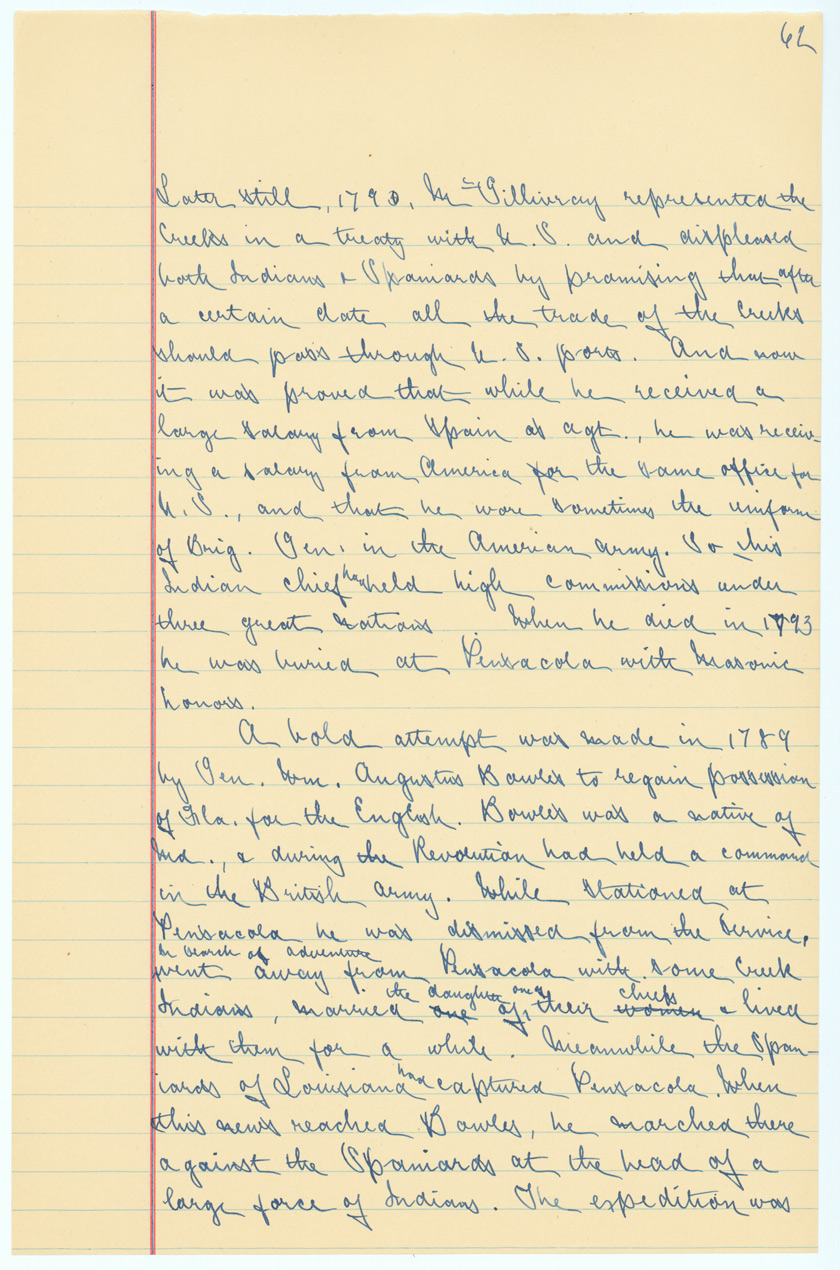 62
Later still, 1790, McGillivray represented the
Creeks in a treaty with U. S. and displeased
both Indians & Spaniards by promising that after
a certain date all the trade of the Creeks
should pass through U. S. ports. And now
it was proved that while he received a
large salary from Spain as agt., he was receiv-
ing a salary from America for the same office for
U. S., and that he wore sometimes the uniform
of Brig. Gen. in the American army. So this
Indian chief has held high commissions under
three great nations. When he died in 1793
he was buried at Pensacola with Masonic
honors.
A bold attempt was made in 1789
by Gen. Wm. Augustus Bowles to regain possession
of Fla. for the English. Bowles was a native of
Md., & during the Revolution had held a command
in the British army. While stationed at
Pensacola he was dismissed from the service,
in search of adventure
went away from Pensacola with some Creek
the daughter one of chiefs
Indians, married one of their women & lived
with them for a while. Meanwhile the Span-
iards of Louisiana had captured Pensacola. When
this news reached Bowles, he marched there
against the Spaniards at the head of a
large force of Indians. The expedition was